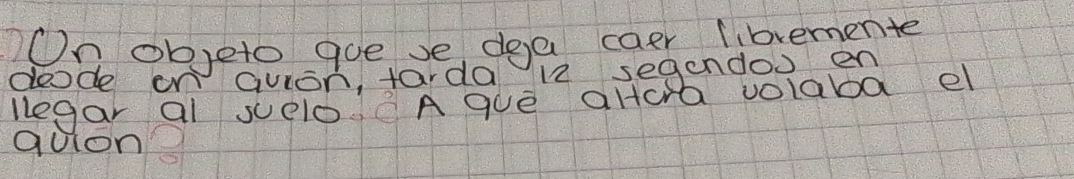 Un objeto que se deja caer libremente
desde un avión, tarda 12 segundos en
llegar al suelo. ¿A qué altura volaba el
avión?